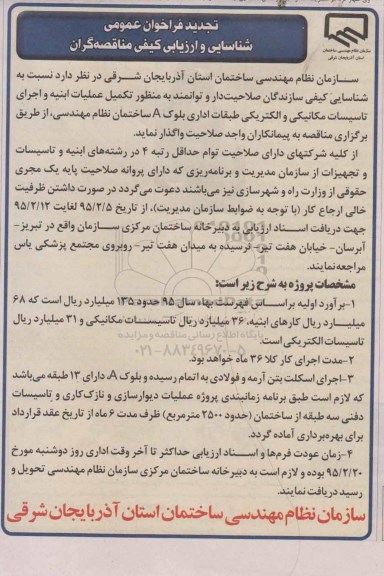 تجدید فراخوان عمومی
شناسایی و ارزیابی کیفی مناقصه‌گران
سازمان نظام مهندسی ساختمان
استان آذربایجان شرقی
سازمان نظام مهندسی ساختمان استان آذربایجان شرقی در نظر دارد نسبت به
شناسایی کیفی سازندگان صلاحیت‌دار و توانمند به منظور تکمیل عملیات ابنیه و اجرای
تاسیسات مکانیکی و الکتریکی طبقات اداری بلوک A ساختمان نظام مهندسی، از طریق
برگزاری مناقصه به پیمانکاران واجد صلاحیت واگذار نماید.
از کلیه شرکتهای دارای صلاحیت توام حداقل رتبه ۴ در رشته‌های ابنیه و تاسیسات
و تجهیزات از سازمان مدیریت و برنامه‌ریزی که دارای پروانه صلاحیت پایه یک مجری
حقوقی از وزارت راه و شهرسازی نیز می‌باشند دعوت می‌گردد در صورت داشتن ظرفیت
خالی ارجاع کار (با توجه به ضوابط سازمان مدیریت)، از تاریخ ۹۵/۲/۵ لغایت ۹۵/۲/۱۲
جهت دریافت اسناد ارزیابی به دبیرخانه ساختمان مرکزی سازمان واقع در تبریز-
آبرسان- خیابان هفت تیر- نرسیده به میدان هفت تیر- روبروی مجتمع پزشکی یاس
مراجعه نمایند.
مشخصات پروژه به شرح زیر است:
۱-برآورد اولیه براساس فهرست بهاء سال ۹۵ حدود ۱۳۵ میلیارد ریال است که ۶۸
میلیارد ریال کارهای ابنیه، ۳۶ میلیارد ریال تاسیسات مکانیکی و ۳۱ میلیارد ریال
تاسیسات الکتریکی است.
۲-مدت اجرای کار کلا ۳۶ ماه خواهد بود.
۳-اجرای اسکلت بتن آرمه و فولادی به اتمام رسیده و بلوک A، دارای ۱۳ طبقه می‌باشد
که لازم است طبق برنامه زمانبندی پروژه عملیات دیوارسازی و نازک‌کاری و تاسیسات
دفنی سه طبقه از ساختمان (حدود ۲۵۰۰ مترمربع) ظرف مدت ۶ ماه از تاریخ عقد قرارداد
برای بهره‌برداری آماده گردد.
۴-زمان عودت فرم‌ها و اسناد ارزیابی حداکثر تا آخر وقت اداری روز دوشنبه مورخ
۹۵/۲/۲۰ بوده و لازم است به دبیرخانه ساختمان مرکزی سازمان نظام مهندسی تحویل و
رسید دریافت نمایند.
سازمان نظام مهندسی ساختمان استان آذربایجان شرقی
پایگاه اطلاع رسانی مناقصه و مزایده
۰۲۱-۸۸۳۴۹۶۷۰-۵